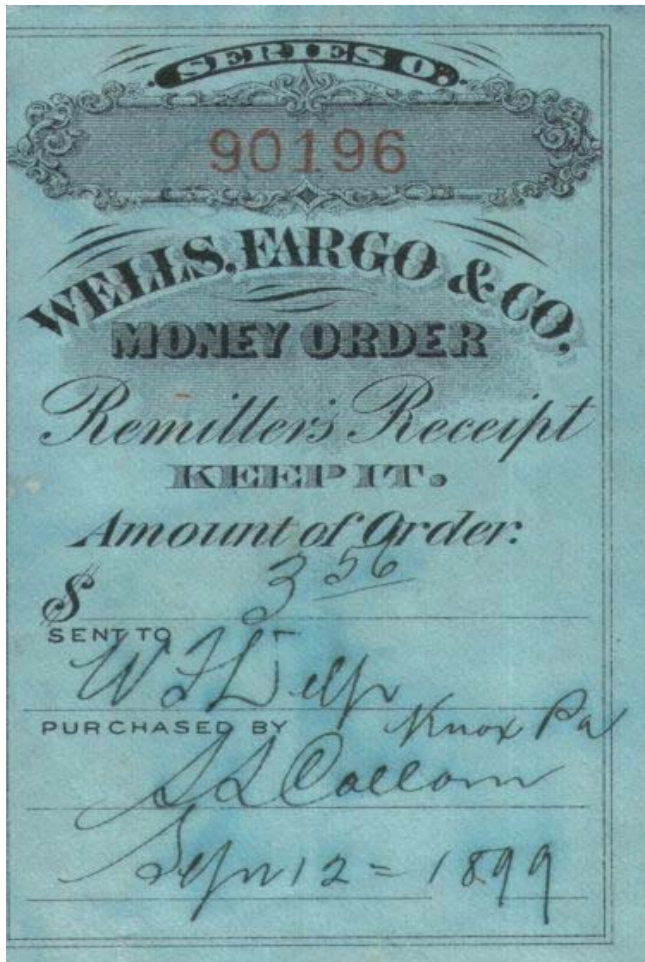 SERIES O.
90196
WELLS, FARGO & CO.
MONEY ORDER
Remitter's Receipt
KEEP IT.
Amount of Order:
$ 3 56
SENT TO
W
Knox Pa
PURCHASED BY
S L Collom
12 = 1899